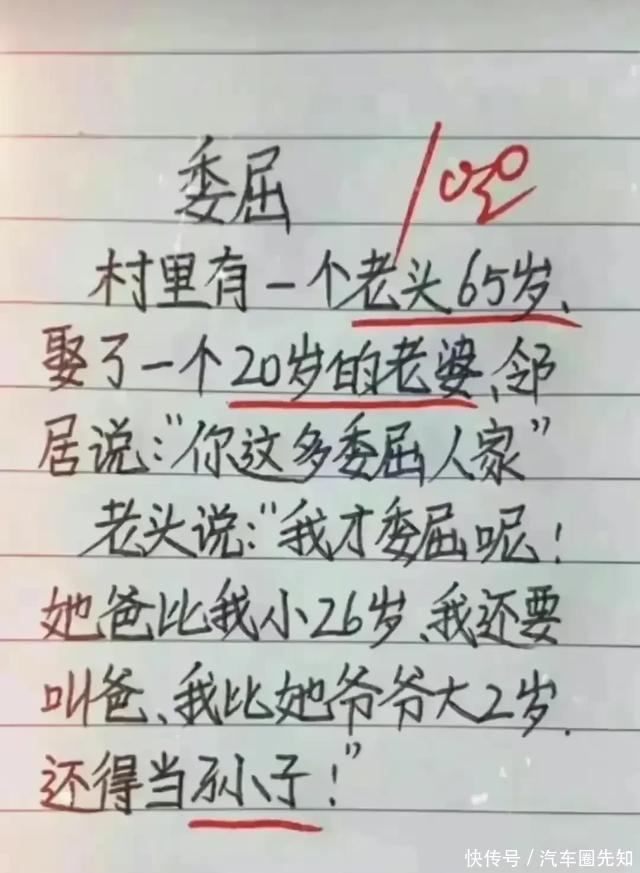 委屈
100
村里有一个老头65岁、
娶了一个20岁的老婆、邻
居说:"你这多委屈人家"
老头说:"我才委屈呢!
她爸比我小26岁、我还要
叫爸、我比她爷爷大2岁.
还得当孙子!"
快传号/汽车圈先知